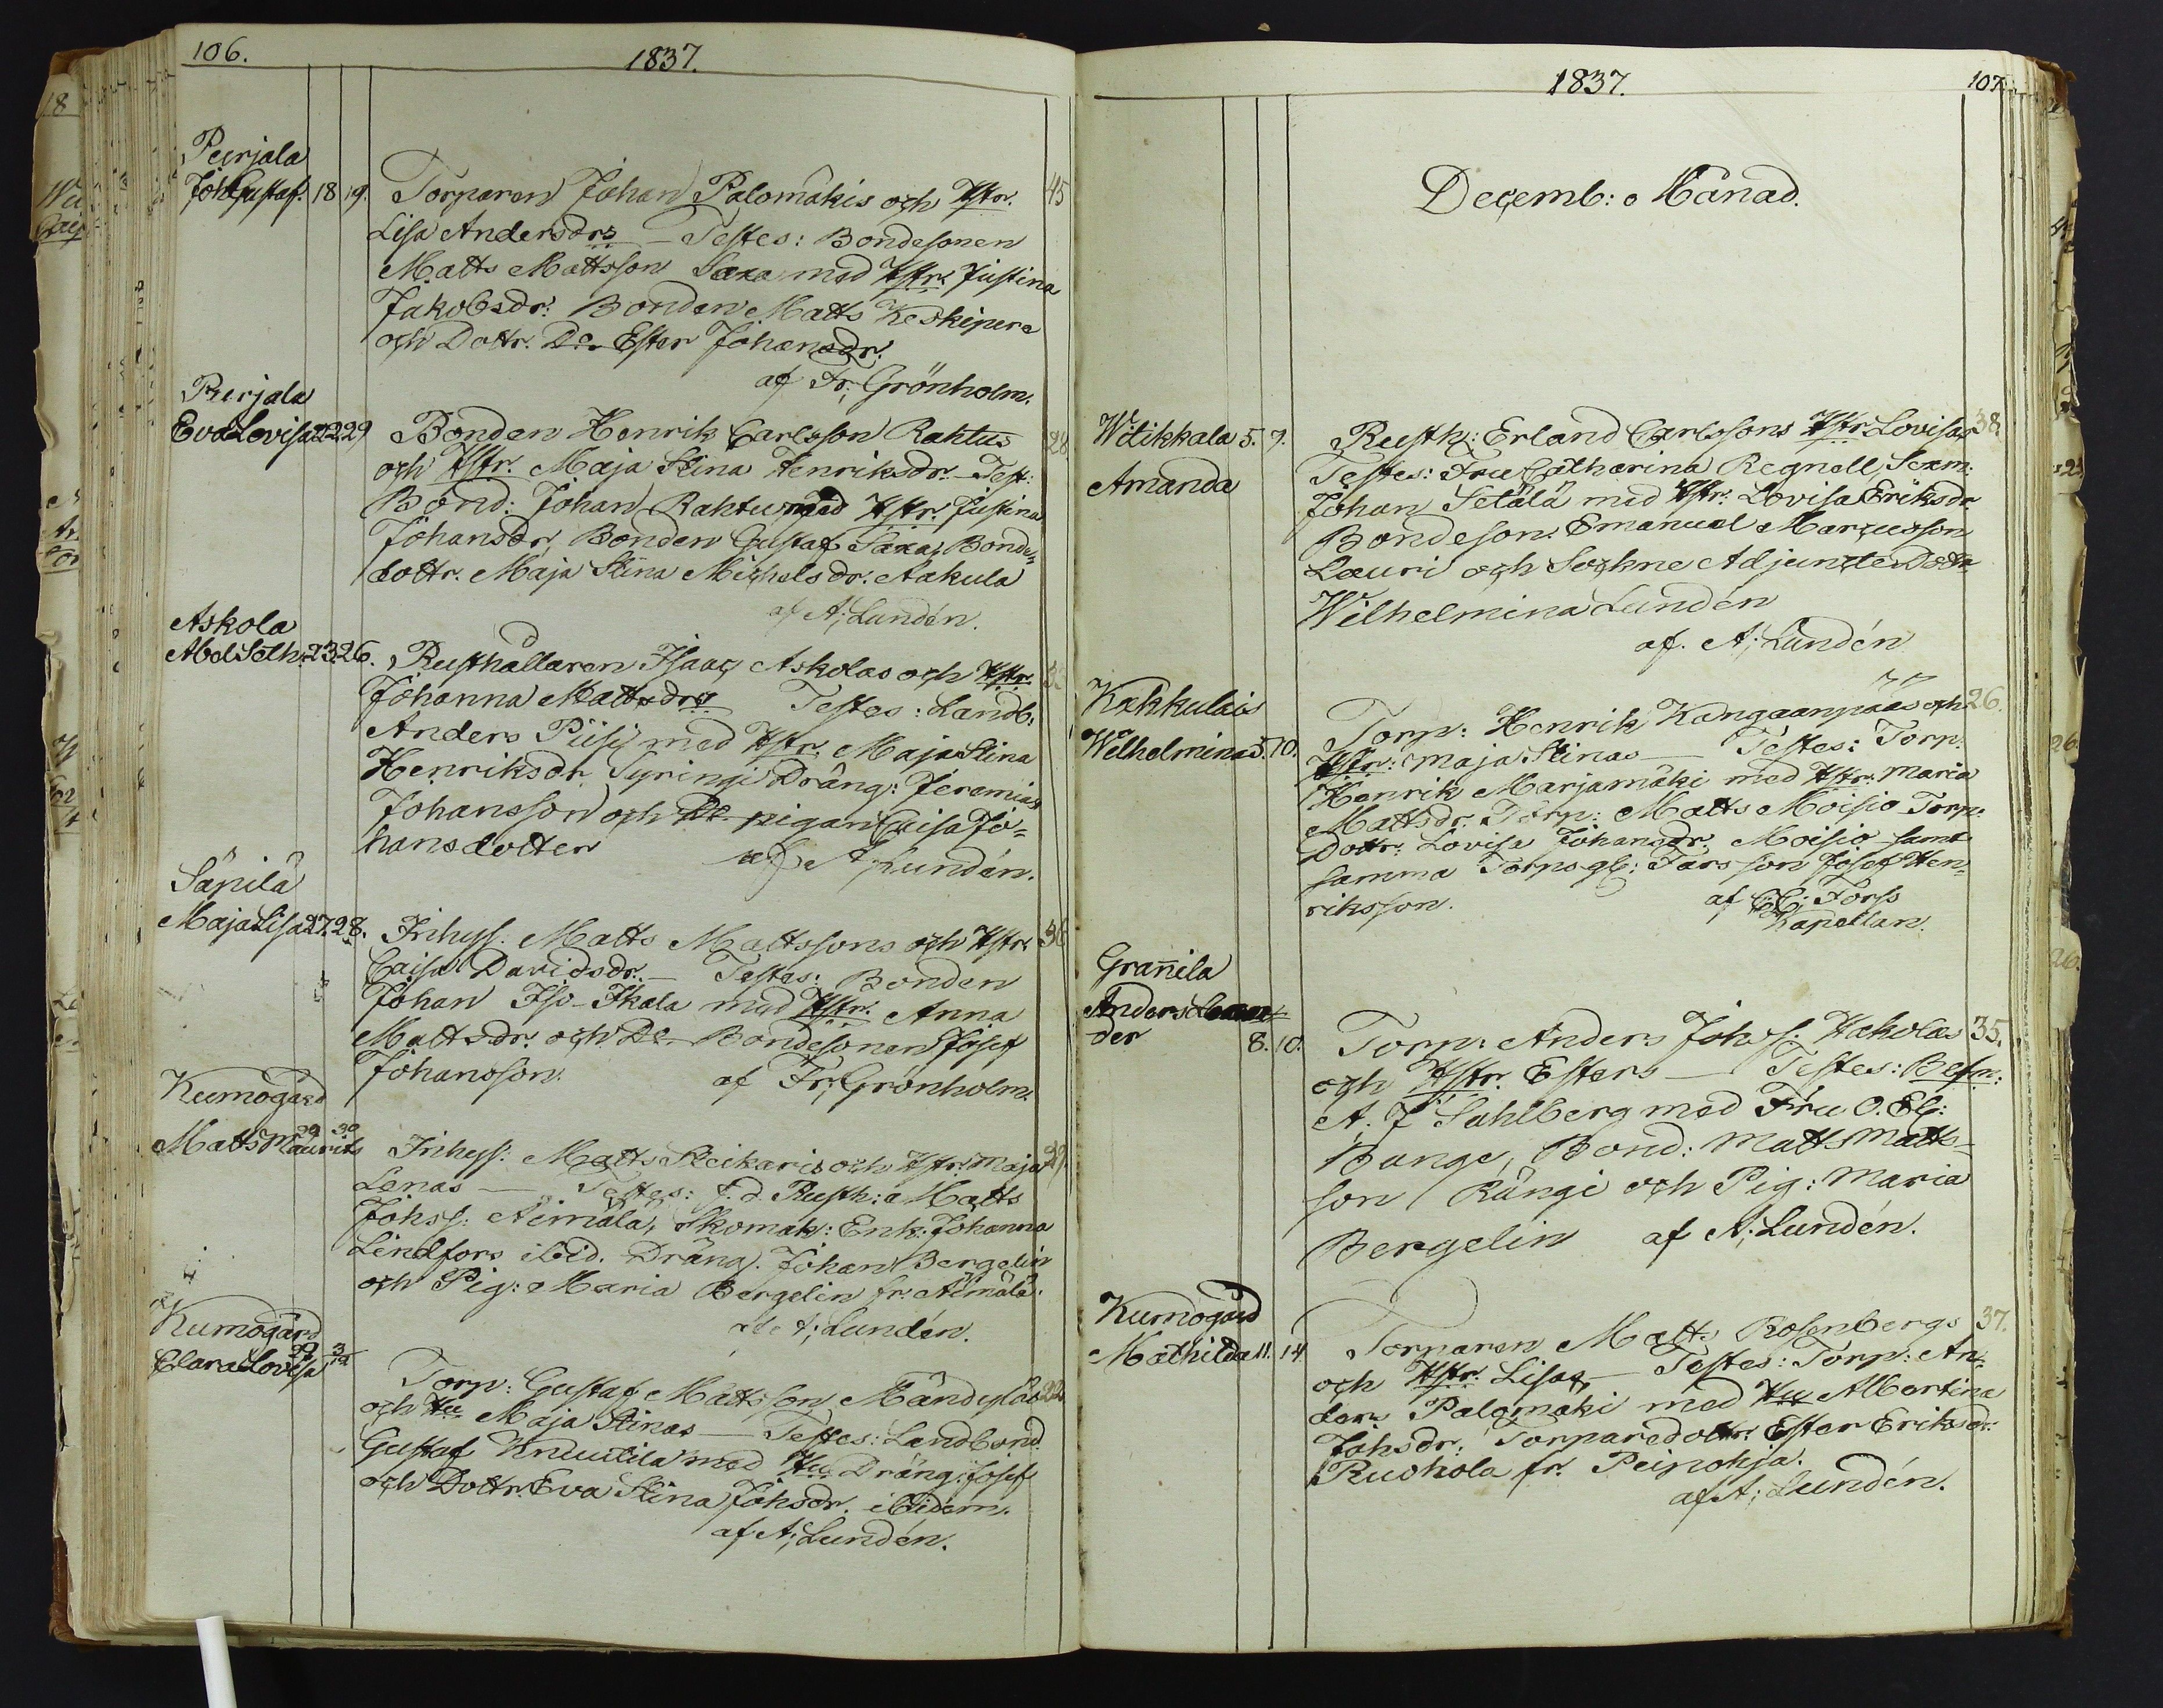 106.
1837.
Peerjala
Joh Gustaf. 18 19. Torparen Johan Palomäkis och Hstr. 45
Lisa Andersdrs – Testes: Bondesonen
Matts Mattsson Saxa med Hstr. Justina
Jakobsdr: Bonden Matts Keskipere
och Dottr. Do Ester Johansdr.
af Fr; Grönholm.
Peerjala
Eva Lovisa 22 29 Bonden Henrik Carlsson Rahtus 28
och Hstr. Maja Stina Henriksdr. – Test:
Bond: Johan Rahtu med Hstr. Justina
Johansdr, Bonden Gustaf Saxa, Bonde=
dottr. Maja Stina Michelsdr. Aakula
af A; Lundén.
Askola
Abel Seth. 23. 26. Rusthållaren Isaac Askolas och Hstr.
Johanna Mattsdrs Testes: Landb:
Anders Piisi med Hstr. Maja Stina
Henriksdr. Syringi Dräng: Jeremias
Johansson och De pigan Caisa Jo=
hansdotter af A; Lundén.
Säpilä
Maja Lisa 27. 28. Inhys. Matts Mattssons och Hstr. 36
Caisa Davidsdr. – Testes: Bonden
Johan Iso-Ikala med Hstr. Anna
Mattsdr. och De Bondesonen Josef
Johansson. af Fr; Grönholm.
Kumogård
Matts Maurits 29 30 Inhys: Matts Steikaris och Hstr: Maja 29.
Lenas – Testes: f. d. Rusth: a Matts
Johss: Äimälä, Skomak: Enk: Johanna
Lindfors ibid. Dräng. Johan Bergelin
och Pig: Maria Bergelin fr. Äimälä.
af A; Lundén.
Kumogård
Clara Lovisa 29 3/12
Torp: Gustaf Mattsson Mändyläs 22
och Hu Maja Stinas – Testes: Landbond.
Gustaf Knuutila med Hu Dräng: Josef
och Dottr. Eva Stina Johsdr. ibidem.
af A; Lundén.
1837.
107
Decemb: Månad.
Witikkala 5. 7. Rusth: Erland Carlssons Hstr Lovisas 38.
Amanda Testes: Fru Catharina Regnell, Sexm:
Johan Setälä med Hstr. Lovisa Eriksdr.
Bondeson: Emanuel Marcusson
Lauri och Sockne Adjuncte Dottr.
Wilhelmina Lundén
af. A; Lundén
Kakkulais
Wilhelmina 5. 10. Torp: Henrik Kangaanpääs och 26.
Hstr: Maja Stinas – Testes: Torp:
Henrik Marjamäki med Hstr. Maria
Mattsdr. Torp: Matts Moisio Torp:
Dottr: Lovisa Johansdr. Moisio samt
samma Torps gl: Fars son Josef Hen=
riksson. af C: C: Forss
Kapellan.
Grannila
Anders
der 8. 10. Torp: Anders Johss. Hakolas 35.
och Hstr. Esters – Testes: Besm:
A. J Sahlberg med Fru O. El:
Bange, Bond: Matts Matts=
son Rängi och Pig: Maria
Bergelin af A; Lundén.
Kumogård
Mathilda 11. 14 Torparen Matts Rosenbergs 37.
och Hstr. Lisas, – Testes: Torp: An=
ders Palomäki med Hu Albertina
Johsdr: Torparedottr. Ester Eriksdr:
Ruohola fr. Peipohja.
af A; Lundén.